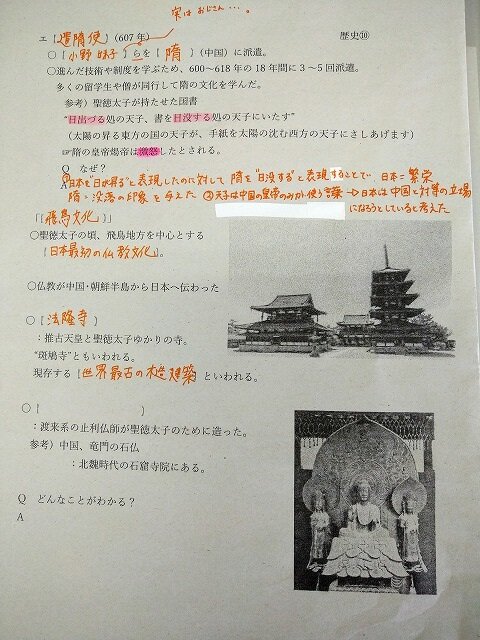 実はおじさん…。
エ【遣隋使】(607年) 歴史⑩
○【小野妹子】らを【隋】(中国)に派遣。
○進んだ技術や制度を学ぶため、600～618の18年間に3～5回派遣。
多くの留学生や僧が同行して隋の文化を学んだ。
参考）聖徳太子が持たせた国書
“日出づる処の天子、書を日没する処の天子にいたす”
（太陽の昇る東方の国の天子が、手紙を太陽の沈む西方の天子にさしあげます）
☞隋の皇帝煬帝は激怒したとされる。
Q なぜ？
A
①日本を“日が昇る”と表現したのに対して隋を“日没する”と表現することで、日本＝繁栄
隋＝没落の印象を与えた ②天子は中国の皇帝のみが使う言葉→日本は中国と対等の立場
になろうとしていると考えた
「【飛鳥文化】」
○聖徳太子の頃、飛鳥地方を中心とする
【日本最初の仏教文化】。
○仏教が中国・朝鮮半島から日本へ伝わった
○【法隆寺】
：推古天皇と聖徳太子ゆかりの寺。
“斑鳩寺”ともいわれる。
現存する【世界最古の木造建築】といわれる。
○【 】
：渡来系の止利仏師が聖徳太子のために造った。
参考）中国、竜門の石仏
：北魏時代の石窟寺院にある。
Q どんなことがわかる？
A